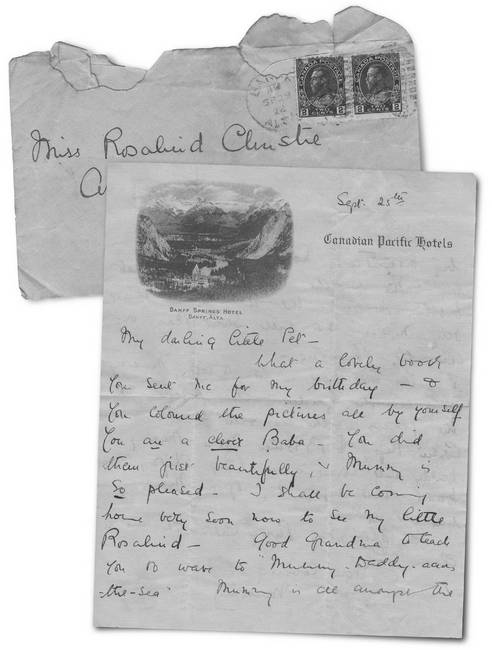 Miss Rosalind Christie
Sept. 25th
Canadian Pacific Hotels
BANFF SPRINGS HOTEL
BANFF, ALTA.
My darling little Pet -
What a lovely book
You sent me for my birthday - &
You coloured the pictures all by yourself
You are a clever Baba - You did
them just beautifully, & Mummy is
so pleased - I shall be coming
home very soon now to see my little
Rosalind - Good Grandma to teach
you to wave to "Mummy - Daddy - across
-the-sea" Mummy is all amongst the